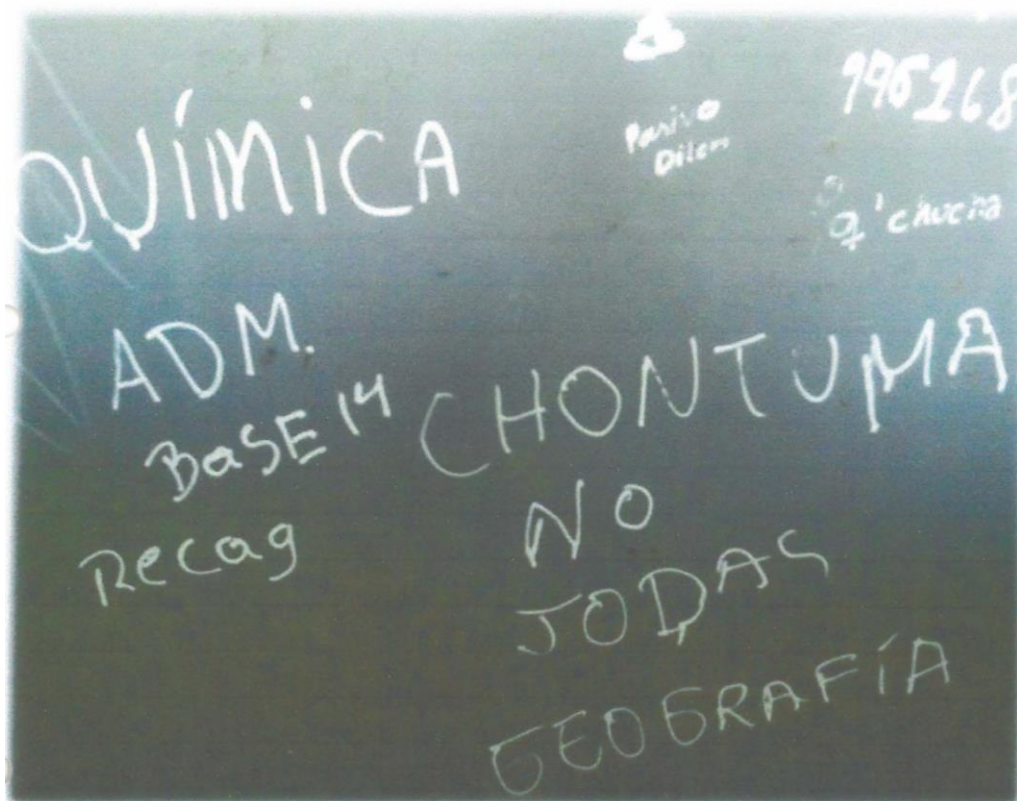 QUÍMICA
996268
q' chucha
ADM.
BaSE 14
Recag
CHONTUMA
NO
JODAS
GEOGRAFÍA